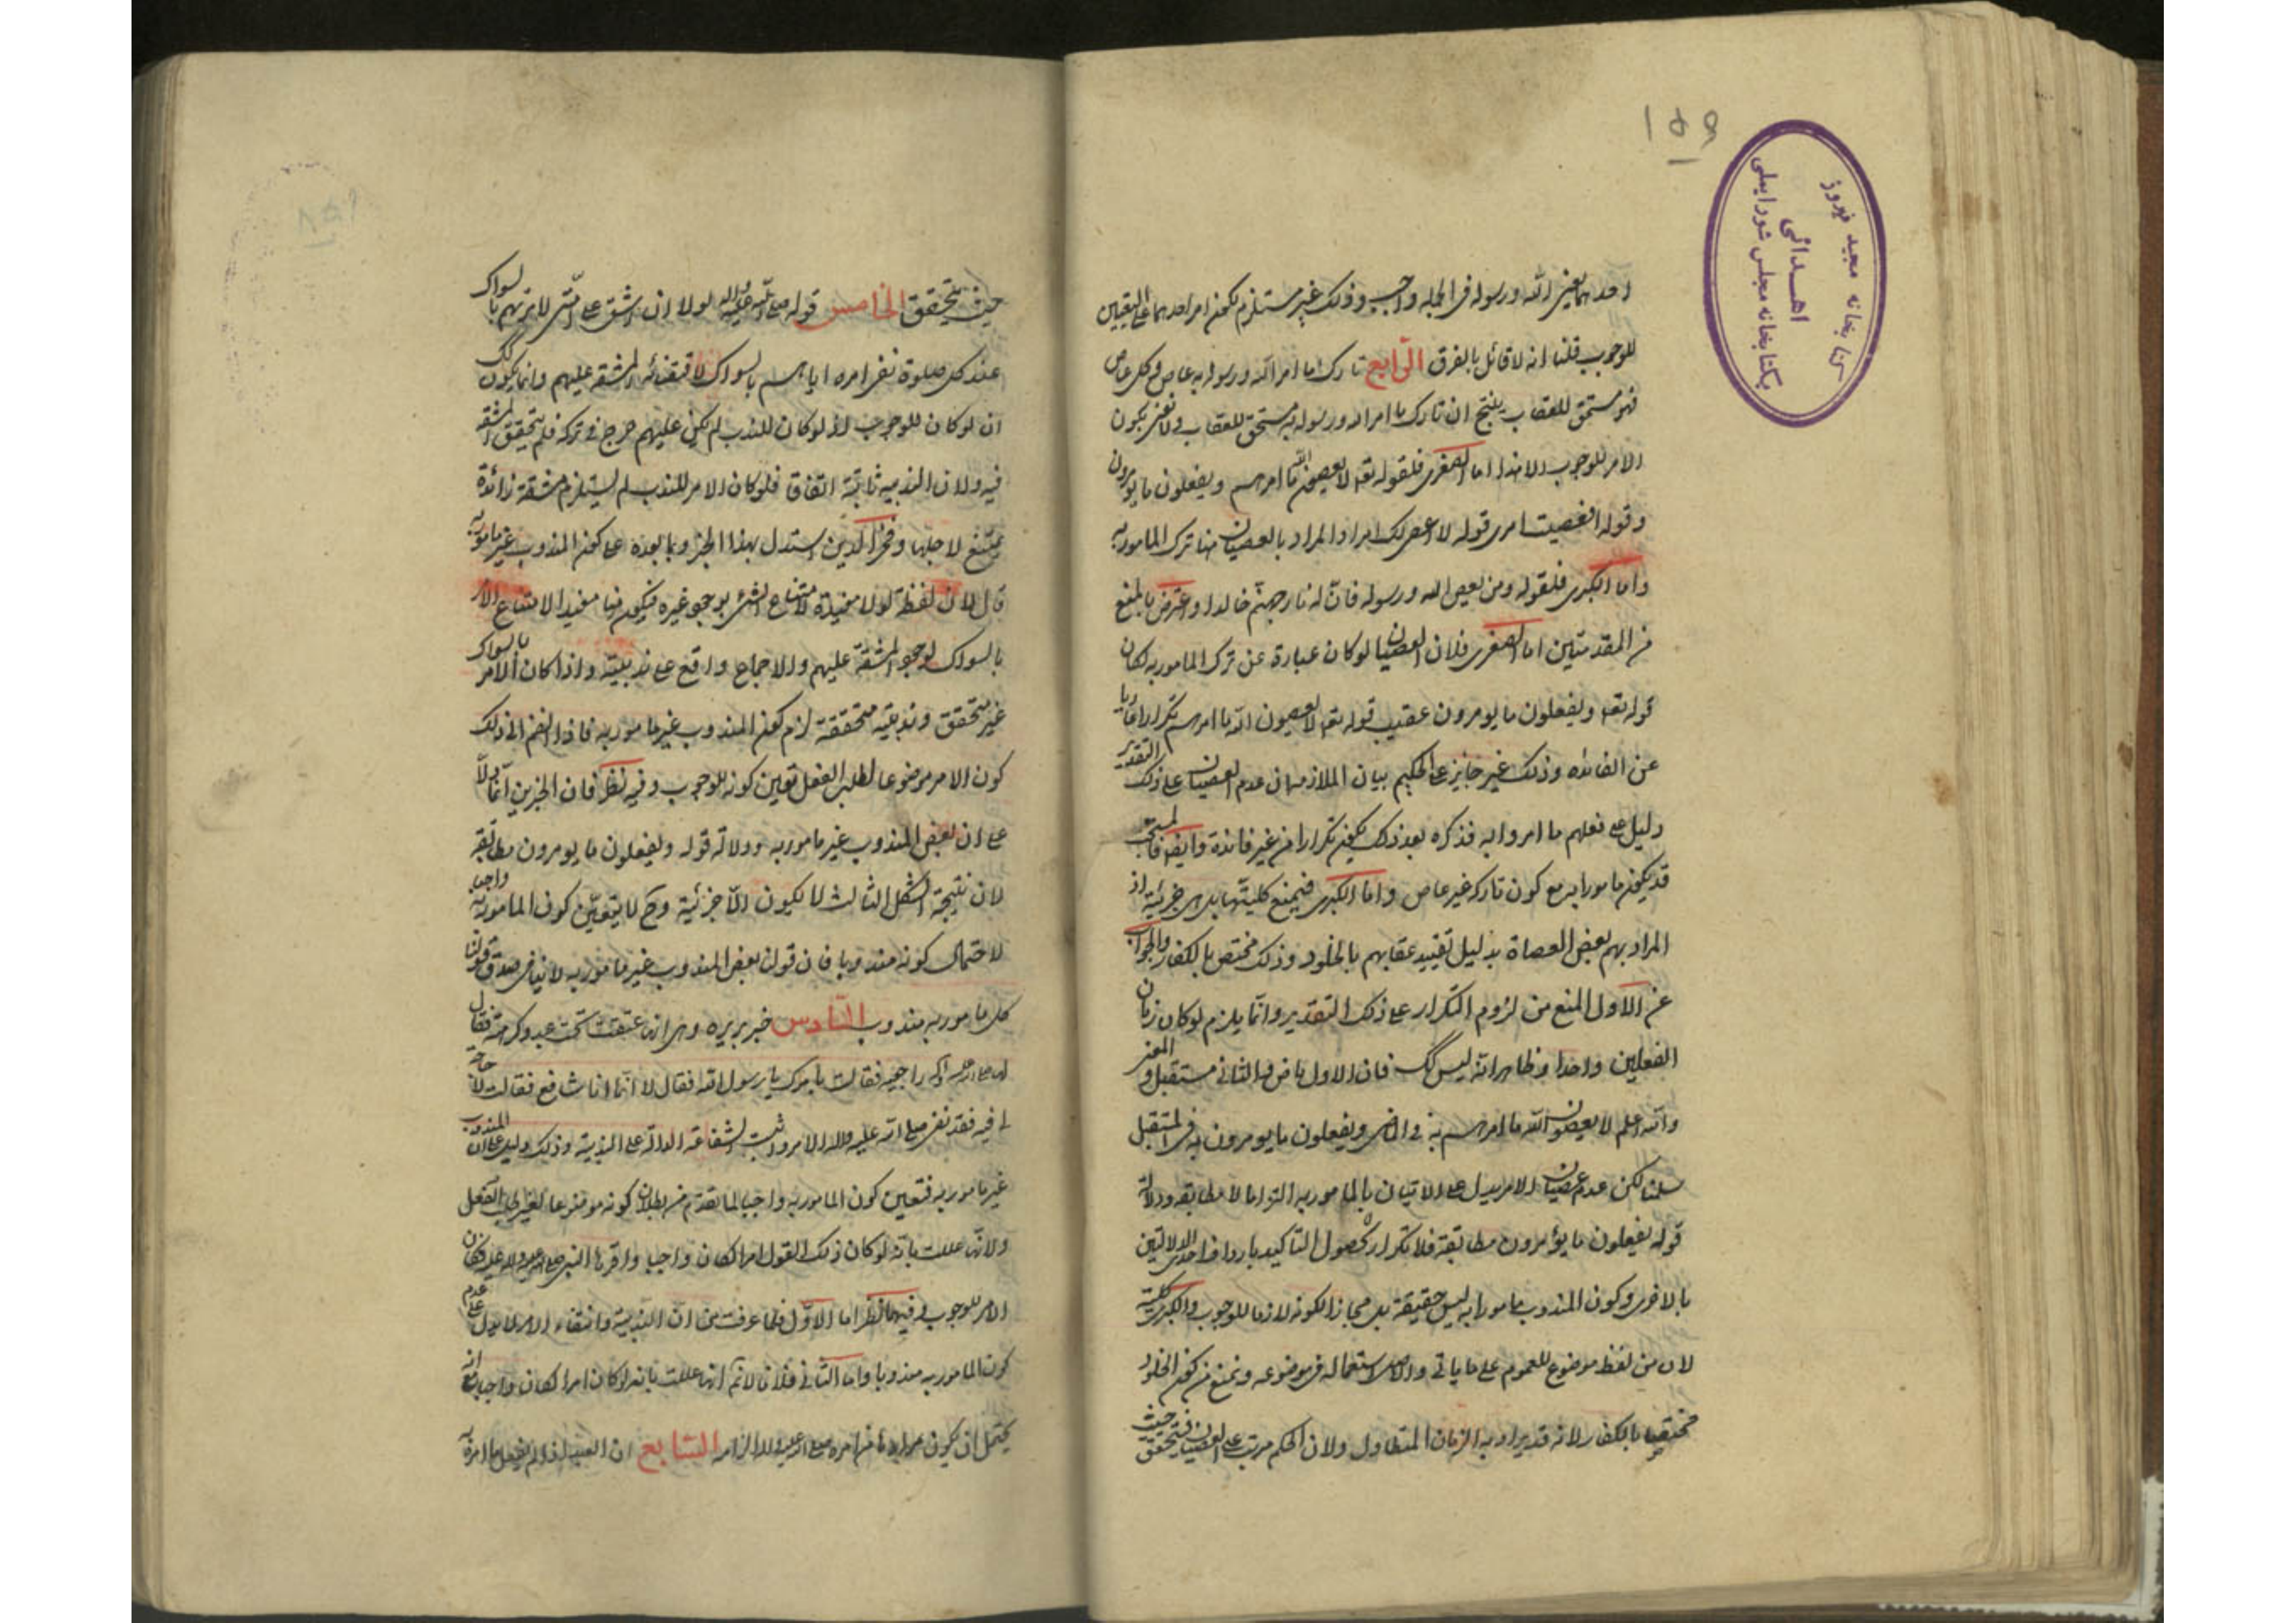 احدهما يعنى الله ورسوله فى الجملة واجب وذلك غير مستلزم لكون امر احدهما على التعيين
للوجوب قلنا انه لا قائل بالفرق الرابع تارك ما امر الله ورسوله به عاص وكل عاص
فهو مستحق للعقاب ينتج ان تارك ما امر الله ورسوله به مستحق للعقاب ولا نعنى بكون
الامر للوجوب الا هذا اما الصغرى فلقوله تعه لا يعصون الله ما امرهم ويفعلون ما يومرون
وقوله افعصيت امرى قوله لا اعصى لك امرا والمراد بالعصيان هنا ترك المامور به
واما الكبرى فلقوله ومن يعص الله ورسوله فان له نار جهنم خالدا واعترض بالمنع
من المقدمتين اما الصغرى فلان العصيان لو كان عبارة عن ترك المامور به لكان
قوله تعه ويفعلون ما يومرون عقيب قوله تعه لا يعصون الله ما امرهم تكرارا عاريا
عن الفائده وذلك غير جايز على الحكيم بيان الملازمة ان عدم العصيان على ذلك التقدير
دليل على فعلهم ما امروا به فذكره بعد ذلك يكون تكرارا من غير فائدة وايضا فالمستحب
قد يكون مامورا به مع كون تاركه غير عاص واما الكبرى فيمنع كليتها بل هى جزئية اذ
المراد بهم بعض العصاة بدليل تقييد عقابهم بالخلود وذلك مختص بالكفار والجواب
عن الاول المنع من لزوم التكرار على ذلك التقدير وانما يلزم لو كان زمان
الفعلين واحدا وظاهر انه ليس كك فان الاول ماض والثانى مستقبل والمعنى
والله اعلم لا يعصون الله ما امرهم به فى الماضى ويفعلون ما يومرون به فى المستقبل
سلمنا لكن عدم عصيان الامر يدل على الاتيان بالمامور به التزاما لا مطابقة ودلالة
قوله يفعلون ما يؤمرون مطابقة فلا تكرار لحصول التاكيد بارداف احدى الدلالتين
بالاخرى وكون المندوب مامورا به ليس حقيقة بل مجازا لكونه لازما للوجوب والكبرى كلية
لان من لفظ موضوع للعموم على ما ياتى والاصل استعماله فى موضوعه ونمنع من كون الخلود
مختصا بالكفار لانه قد يراد به الزمان المتطاول ولان الحكم مرتب على العصيان فيتحقق حيث
حيث يتحقق الخامس قوله صلى الله عليه واله لولا ان اشق على امتى لامرتهم بالسواك
عند كل صلوة نفى امره اياهم بالسواك لاقتضائه المشقه عليهم وانما يكون كك
ان لو كان للوجوب اذ لو كان للندب لم يكن عليهم حرج فى تركه فلم يتحقق المشقة
فيه ولان الندبية ثابتة اتفاقا فلو كان الامر للندب لم يستلزم مشقة زائدة
يمتنع لاجلها وفخر الدين استدل بهذا الخبر وبما بعده على كون المندوب غير مامور به
قال لان لفظة لولا مفيدة لامتناع الشئ لوجود غيره فيكون هنا مفيدا لامتناع الامر
بالسواك لوجود المشقة عليهم والاجماع واقع على ندبيته واذا كان الامر بالسواك
غير متحقق وندبيته متحققة لزم كون المندوب غير مامور به فاذا انضم الى ذلك
كون الامر موضوعا لطلب الفعل تعين كونه للوجوب وفيه نظر فان الخبرين انما دلا
على ان بعض المندوب غير مامور به ودلالة قوله ويفعلون ما يومرون مطابقة
لان نتيجة الشكل الثالث لا يكون الا جزئية وح لا يتعين كون المامور به واجبا
لاحتمال كونه مندوبا فان قولنا بعض المندوب غير مامور به لا ينافى صدق قولنا
كل مامور به مندوب السادس خبر بريره وهى انها عتقت تحت عبد وكرهته فقال
لها صلى الله عليه واله راجعيه فقالت بامرك يا رسول الله فقال لا انما انا شافع فقالت لا حاجة
لى فيه فقد نفى صلى الله عليه واله الامر واثبت الشفاعة الدالة على الندبية وذلك دليل على ان المندوب
غير مامور به فتعين كون المامور به واجبا لما تقدم من بطلان كونه موضوعا لغير طلب الفعل
ولانها عللت بانه لو كان ذلك القول امرا لكان واجبا واقرها النبى صلى الله عليه واله عليه فكان
الامر للوجوب وفيهما نظر اما الاول فلما عرفت من ان الندبية وانتفاء الامر لا يدل على عدم
كون المامور به مندوبا واما الثانى فلانا لا نم انها عللت بانه لو كان امرا لكان واجبا مع انه
يحتمل ان يكون مرادها من امره صلى الله عليه واله الزامه السابع ان العبد اذا لم يفعل ما امره به